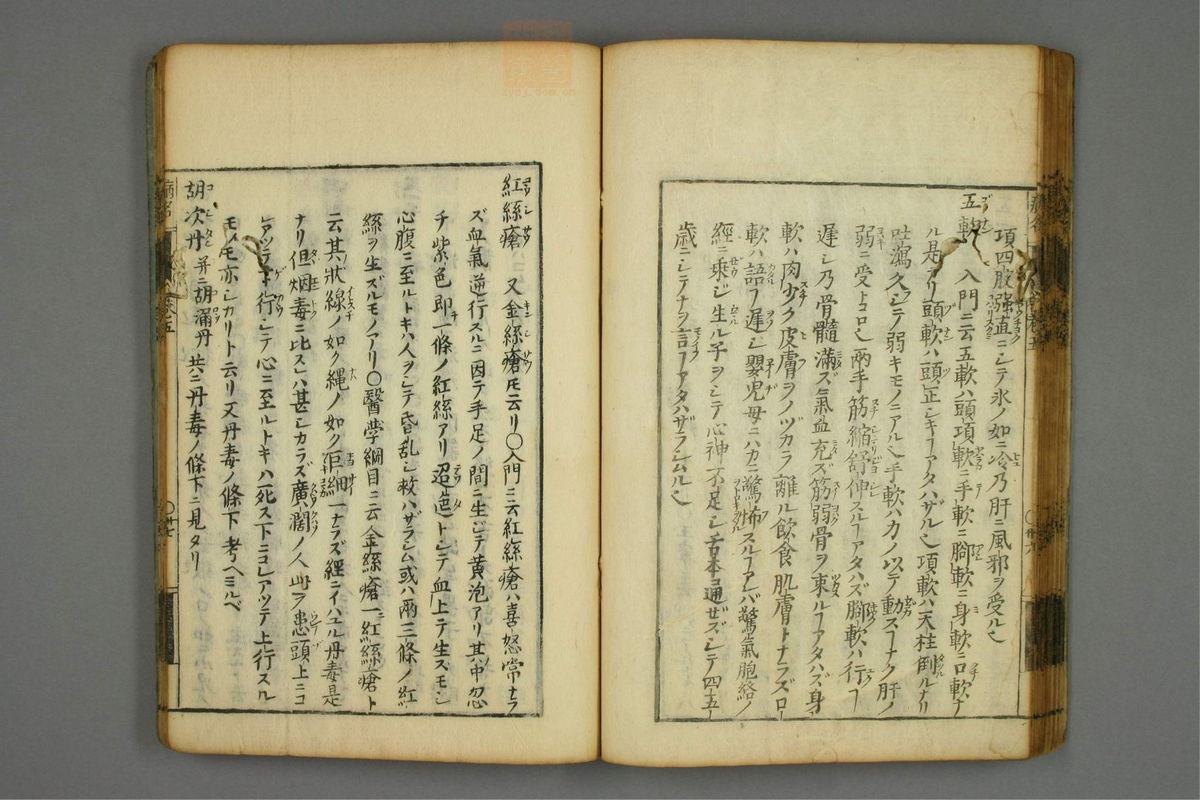 項四肢强直ニシテ氷ノ如ニ冷乃肝ニ風邪ヲ受ル也
五軟 入門ニ云五軟ハ頭項軟ニ手軟ニ脚軟ニ身軟ニ口軟ナ
ル是ナリ頭軟ハ頭正シキヿアタハザル也項軟ハ天柱倒ルナリ
吐瀉久シテ弱キモノニアル也手軟ハカノ以テ動スヿナク肝ノ
弱ニ受トコロ也兩手筋縮舒伸スルヿアタハズ脚軟ハ行ヿ
遲シ乃骨髓滿ズ氣血充ズ筋弱骨ヲ束ルヿアタハズ身
軟ハ肉少ク皮膚ヲノヅカラ離ル飲食肌膚トナラズロ
軟ハ語ヿ遲シ嬰児母ニハカニ驚怖スルヿアレバ驚氣胞絡ノ
經ニ乘ジ生ル子ヲシテ心神不足シ舌本通ゼズシテ四五
歳ニシテナヲ言ヿアタハザラシムル也
紅絲瘡 又金絲瘡モ云リ○入門ニ云紅絲瘡ハ喜怒常ナラ
ズ血氣逆行スルニ因テ手足ノ間ニ生ジテ黄泡アリ其中忽
チ紫色即一條ノ紅絲アリ迢〻トシテ血上テ生ズモシ
心腹ニ至ルトキハ人ヲシテ昏乱シ救ハザラシム或ハ兩三條ノ紅
絲ヲ生ズルモノアリ○醫學綱目ニ云金絲瘡一ニ紅絲瘡ト
云其狀線ノ如ク縄ノ如ク巨細一ナラズ經ニイハユル丹毒是
ナリ但烟毒ニ比スレハ甚シカラズ廣濶ノ人此ヲ患頭上ニコ
レアツテ下行シテ心ニ至ルトキハ死ス下ニコレアツテ上行スル
モノモ亦シカリト云リ又丹毒ノ條下考ヘミルベ
胡次丹 并ニ胡漏丹 共ニ丹毒ノ條下ニ見タリ